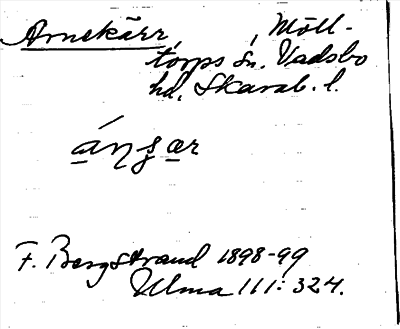 Arnekärr, Möll-
torps sn. Vadsbo
hd, Skarab. l.
áŋsar
F. Bergstrand 1898-99
Ulma 111: 324.